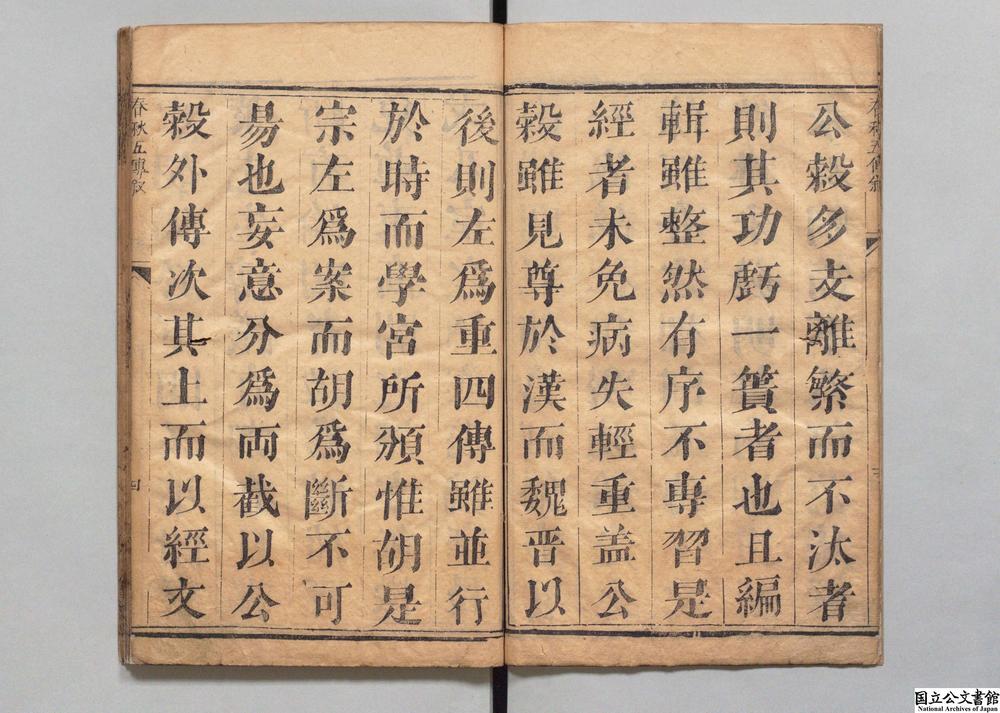 公穀多支離繁而不汰者
則其功虧一簣者也且編
輯雖整然有序不專習是
經者未免病失輕重蓋公
穀雖見尊於漢而魏晋以
後則左爲重四傳雖並行
於時而學宮所頒惟胡是
宗左爲案而胡爲斷不可
昜也妄意分爲兩截以公
穀外傳次其上而以經文
春秋五傳叙
四
国立公文書館
National Archives of Japan